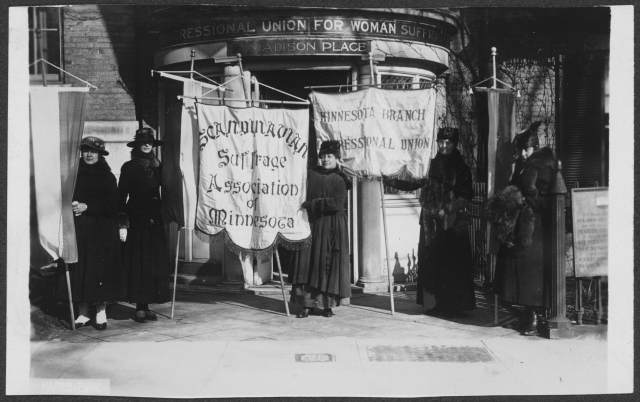 CONGRESSIONAL UNION FOR WOMAN SUFFRAGE
MADISON PLACE
Scandinavian
Suffrage
Association
of
Minnesota
MINNESOTA BRANCH
CONGRESSIONAL UNION